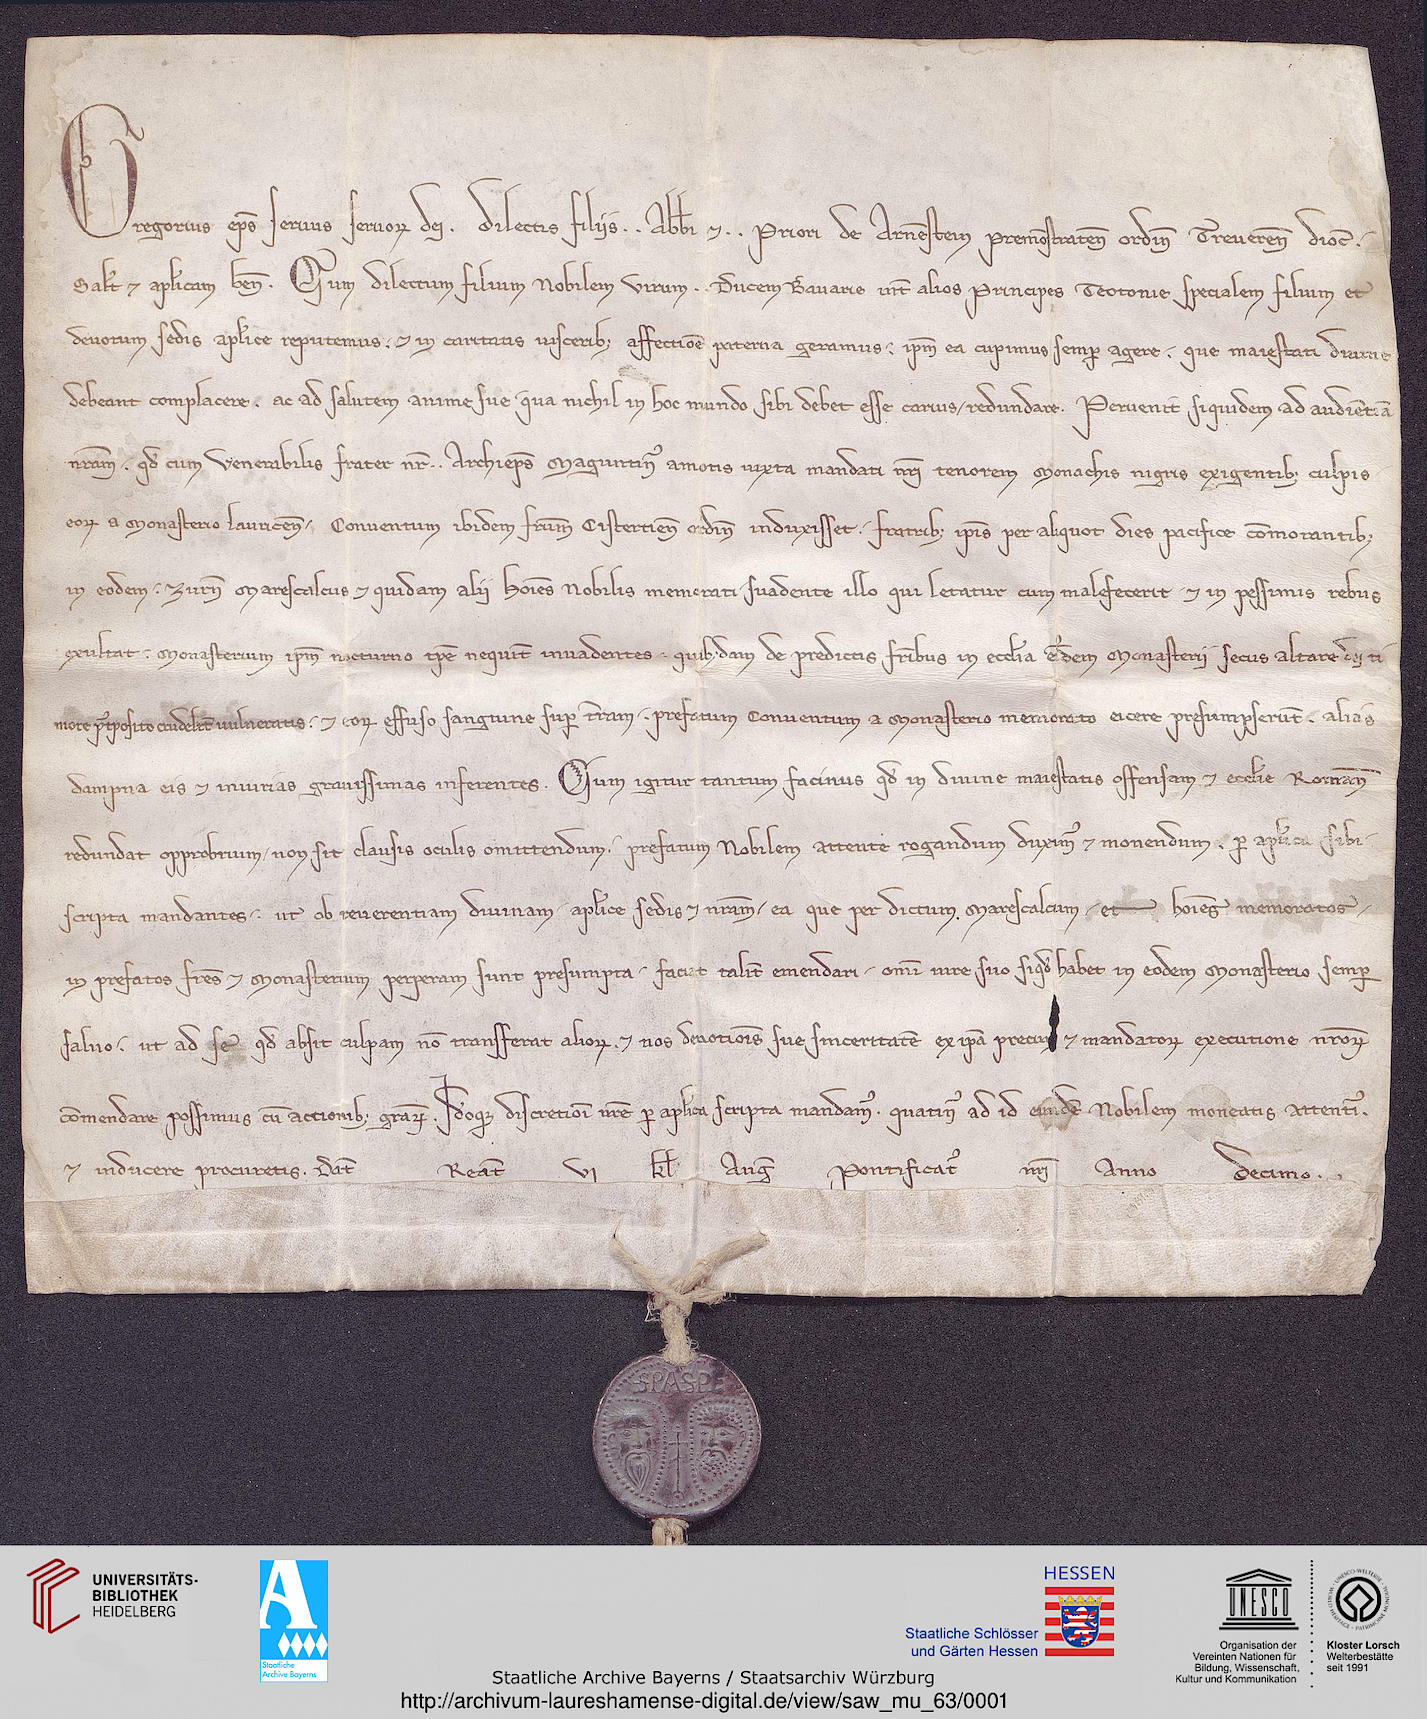 Gregorius ep̄s seruus seruoꝝ dej. Dilectis filijs.. Abb̄i ⁊.. Priori de Arnēstein Premōstrateñ ordiñ Treuereñ dioc̄.
Salt̄ ⁊ aplicam beñ. Cum dilectum filium Nobilem virum.. Ducem Bauarie int̄ alios Principes Teotonie specialem filium et
deuotum sedis aplice reputemus, ⁊ in caritatis uisceribꝫ affectiōe paterna geramus, ip̄m ea cupimus semꝑ agere, que maiestati diuine
debeant complacere, ac ad salutem anime sue qua nichil in hoc mundo sibi debet esse carius, redundare. Peruenit siquidem ad audiētiā
nr̄am, qd̄ cum Venerabilis frater nr̄.. Archiep̄s Maguntiñ amotis iuxta mandati nr̄i tenorem Monachis nigris exigentibꝫ culpis
eoꝝ a Monasterio Lauriceñ, Conuentum ibidem fr̄um Cistertieñ ordiñ induxisset, fratribꝫ ip̄is per aliquot dies pacifice cōmorantibꝫ
in eodem, Zurñ Marescalcus ⁊ quidam alij hoīes Nobilis memorati suadente illo qui letatur cum malefecerit ⁊ in pessimis rebus
exultat, Monasterium ip̄m nocturno tp̄e nequit̄ inuadentes, quibꝫdam de predictis fr̄ibus in eccl̄ia eiusdem Monasterij secus altare dei ti
more p̄tposito crudelit̄ uulneratis, ⁊ eoꝝ effuso sanguine suꝑ t̄ram, prefatum Conuentum a Monasterio memorato eicere presumpserunt̄, alias
dampna eis ⁊ iniurias grauissimas inferentes. Cum igitur tantum facinus qd̄ in diuine maiestatis offensam ⁊ eccl̄ie Romañ
redundat opprobrium, non sit clausis oculis omittendum, prefatum Nobilem attente rogandum duxim᷒ ⁊ monendum, ꝑ aplica sibi
scripta mandantes, ut ob reuerentiam diuinam, aplice sedis ⁊ nr̄am, ea que per dictum Marescalcum, et hoīes memoratos,
in prefatos fr̄es ⁊ Monasterium perperam sunt presumpta, faciat talit̄ emendari, omī iure suo siqd̄ habet in eodem Monasterio semꝑ
saluo, ut ad se qd̄ absit culpam nō transferat alioꝝ, ⁊ nos deuotiōis sue sinceritatē ex ip̄a precum ⁊ mandatoꝝ executione nr̄oꝝ
cōmendare possimus cū actionibꝫ gr̄aꝝ. Ideoqꝫ discretioī ur̄e ꝑ aplica scripta mandam᷒, quatin᷒ ad id eundē Nobilem moneatis attenti᷒,
⁊ inducere procuretis. Dat̄ Reat̄ VI kl̄ Aug̃ Pontificat᷒ nr̄i Anno Decimo.
SPASPE
UNIVERSITÄTS-
BIBLIOTHEK
HEIDELBERG
Staatliche
Archive Bayerns
HESSEN
Staatliche Schlösser
und Gärten Hessen
UNESCO
Organisation der
Vereinten Nationen für
Bildung, Wissenschaft,
Kultur und Kommunikation
Kloster Lorsch
Welterbestätte
seit 1991
Staatliche Archive Bayerns / Staatsarchiv Würzburg
http://archivum-laureshamense-digital.de/view/saw_mu_63/0001